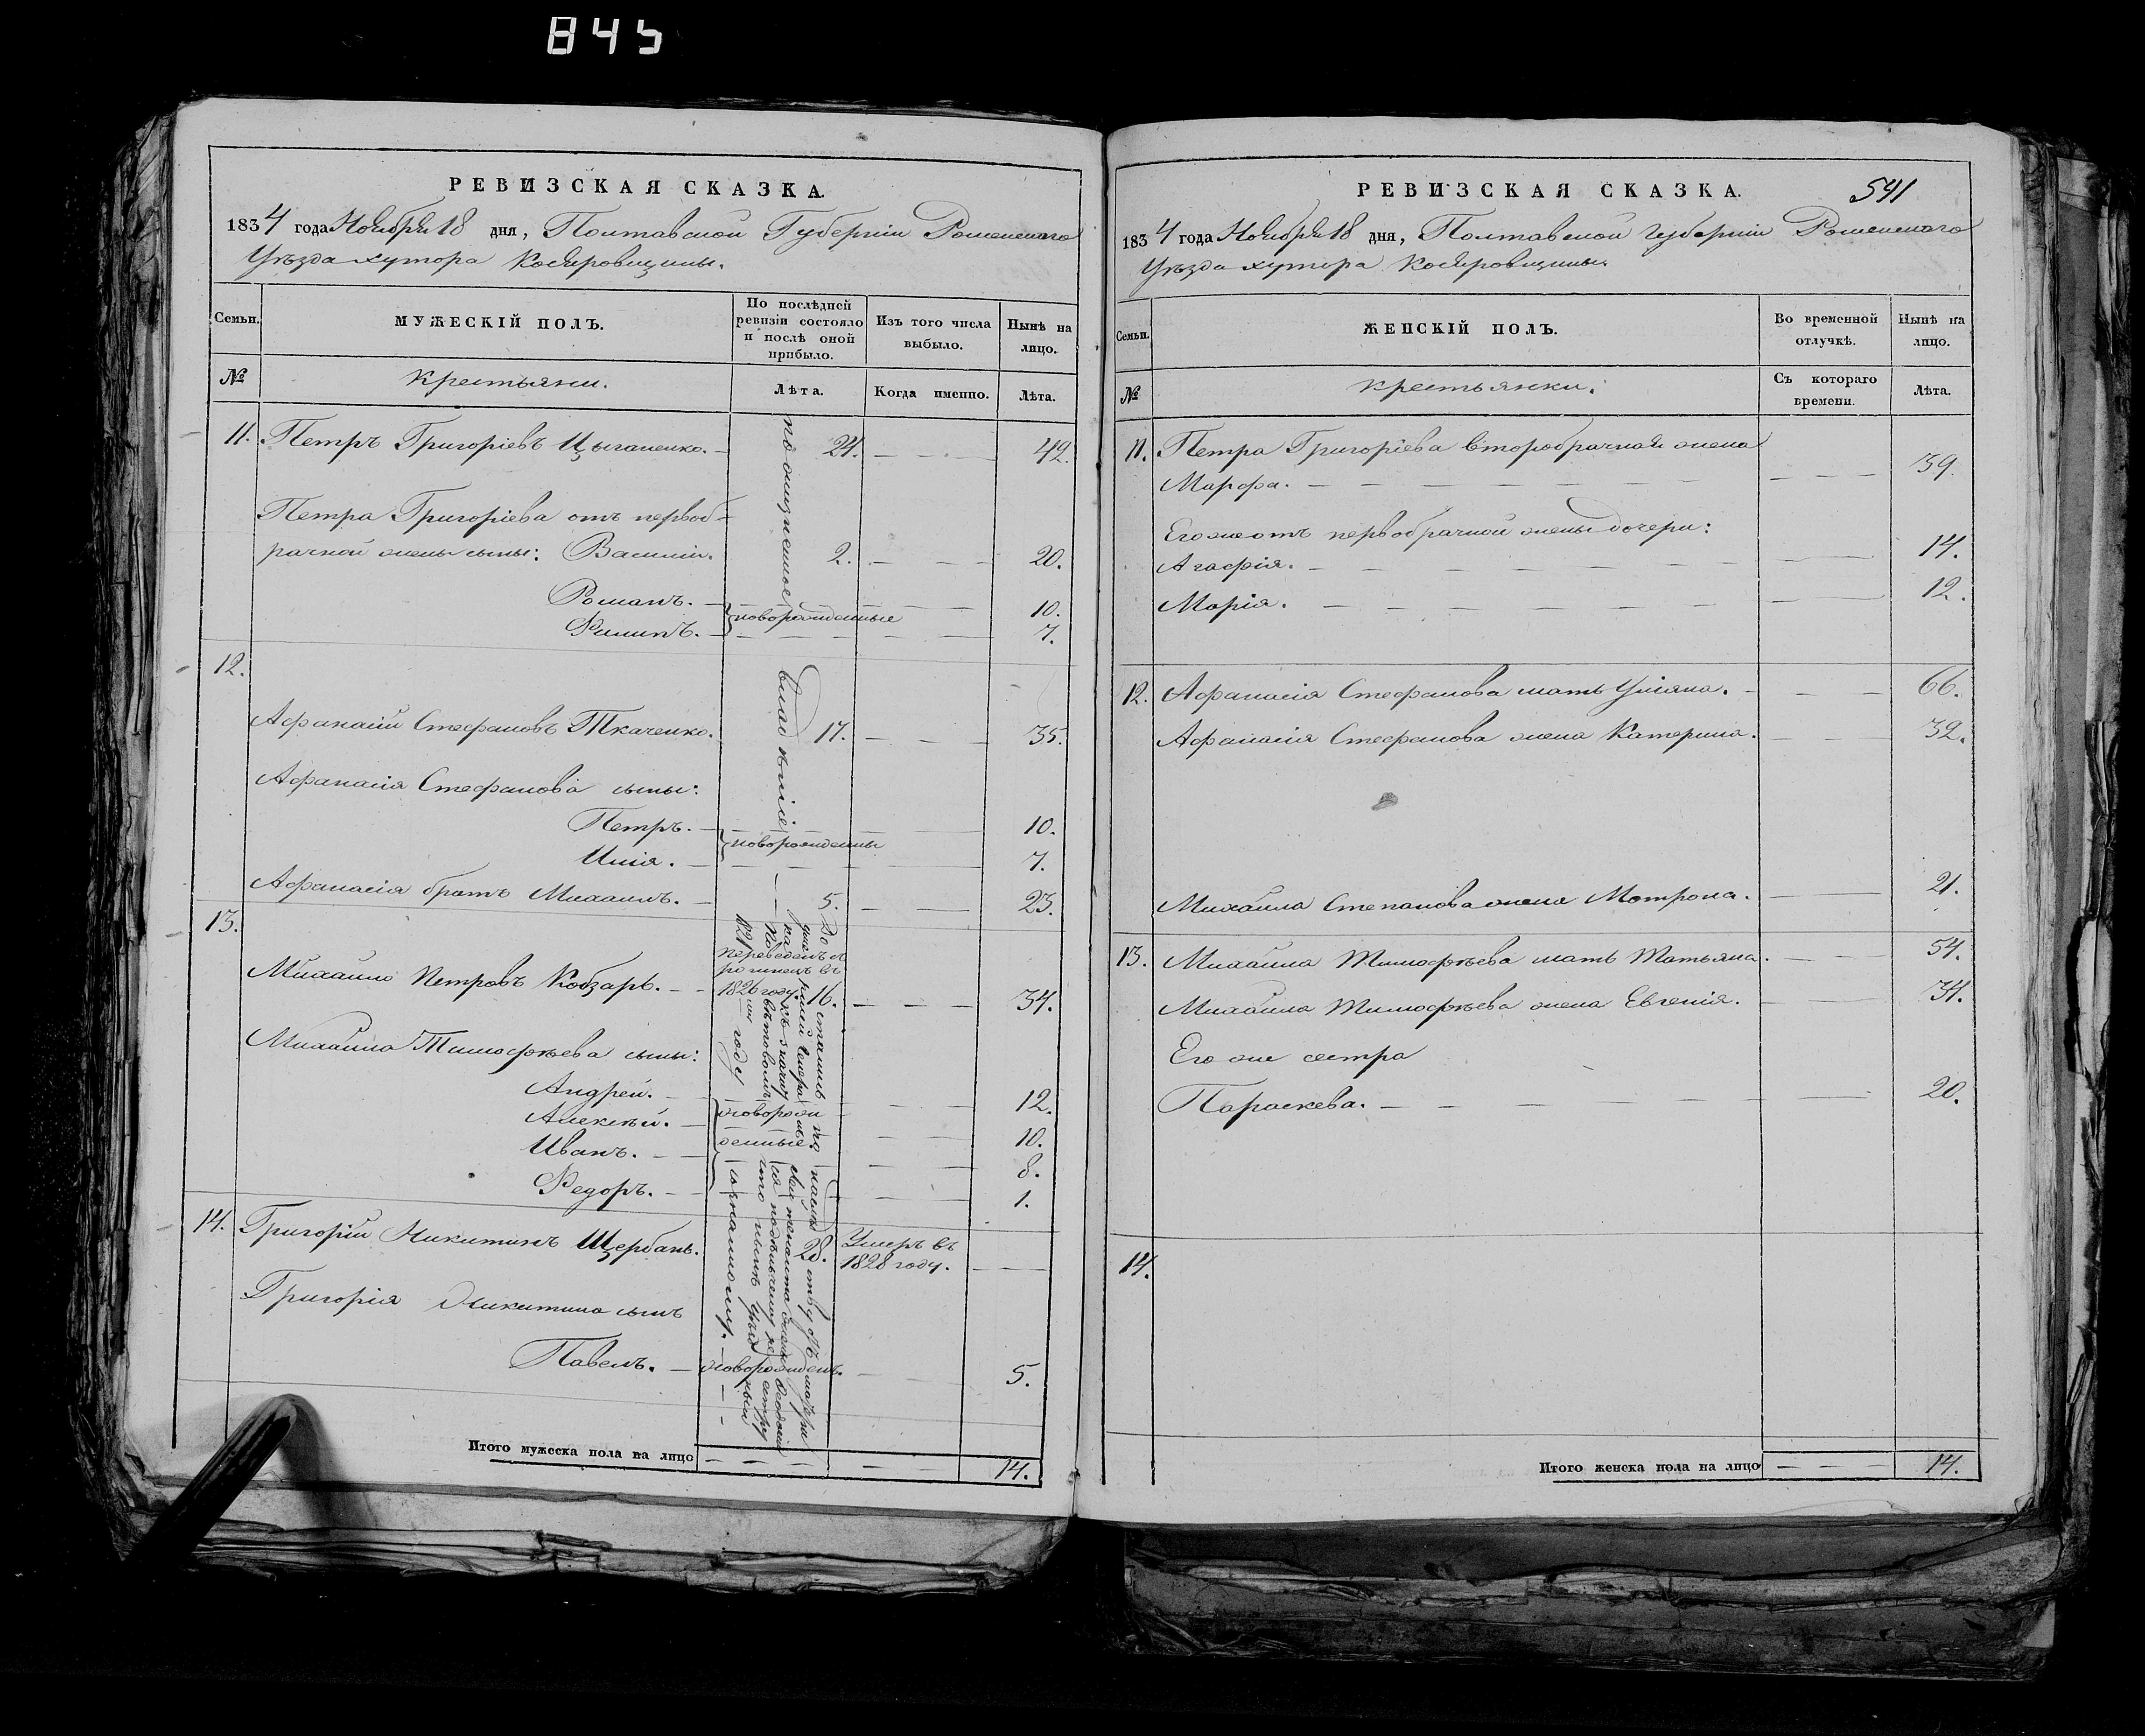 845
РЕВИЗСКАЯ СКАЗКА.
1834 года Ноября 18 дня, Полтавской Губерніи Роменскаго
Уѣзда хутора
МУЖЕСКІЙ ПОЛЪ.
Семьи.
По послѣдней ревизіи состояло и послѣ оной прибыло.
Изъ того числа выбыло.
Нынѣ на лицо.
№
Крестьяни.
Лѣта.
Когда именно.
Лѣта.
11. Петръ Григоріевъ Цыганенко. 24. 42.
Петра Григоріева отъ первоб-
рачной жены сыны: Василій. 2. 20.
Романъ. 10.
новорожденные
Филипъ. 7.
12.
Афанасій Стефановъ Ткаченко. 17. 35.
Афанасія Стефанова сыны:
Петръ. 10.
новорожденны
Илія. 7.
Афанасія братъ Михаилъ. 5. 23.
13.
Михайло Петровъ Кобзарь. 16. 34.
1826 году
Михайла Тимофѣева сыны:
Андрей. 12.
Алексѣй. новорож 10.
Иванъ. денные 8.
Федоръ. 1.
14. Григорій Никитинъ Щербань. 28. Умеръ въ
1828 году.
Григорія Никитина сынъ
Павелъ. новорожденъ. 5.
Итого мужеска пола на лицо 14.
РЕВИЗСКАЯ СКАЗКА.
541
1834 года Ноября 18 дня, Полтавской Губерніи Роменскаго
Уѣзда хутора
Семьи.
ЖЕНСКІЙ ПОЛЪ.
Во временной отлучкѣ.
Нынѣ на лицо.
№
Крестьянки.
Съ котораго времени.
Лѣта.
11. Петра Григоріева второбрачная жена
Марфа. 39.
Его же отъ первобрачной жены дочери:
Агафія. 14.
Марія. 12.
12. Афанасія Стефанова мать Уліяна. 66.
Афанасія Стефанова жена Катерина. 32.
Михайла Степанова жена Мотрона. 21.
13. Михайла Тимофѣева мать Татьяна. 54.
Михайла Тимофѣева жена Евгенія. 34.
Его же сестра
Параскева. 20.
14.
Итого женска пола на лицо 14.